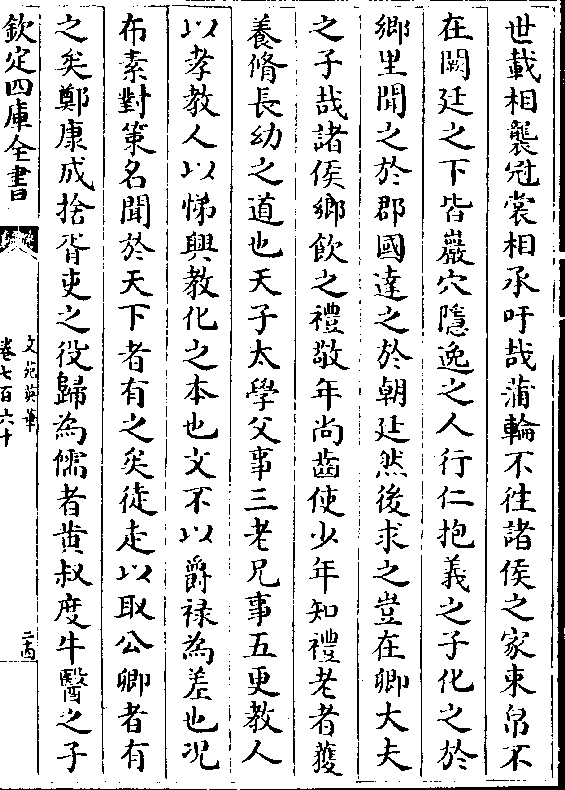 世載相襲冠裳相承吁哉蒲輪不徃諸侯之家束帛不
在闕廷之下皆巖穴隱逸之人行仁抱義之子化之於
鄉里聞之於郡國達之於朝廷然後求之豈在卿大夫
之子哉諸侯鄉飲之禮敬年尚齒使少年知禮老者獲
養脩長幼之道也天子太學父事三老兄事五更教人
以孝教人以悌興教化之本也文不以爵禄為差也况
布素對策名聞於天下者有之矣徒走以取公卿者有
之矣鄭康成捨胥吏之役歸為儒者黄叔度牛醫之子
欽定四庫全書
文苑英華
卷七百六十